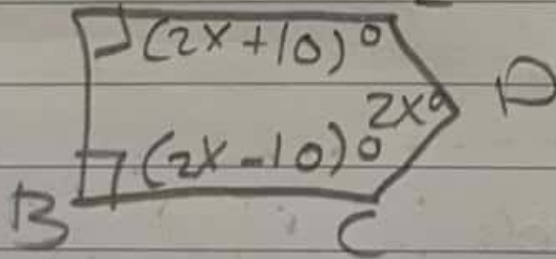 (2x+10)°
2x° D
(2x-10)°
B C